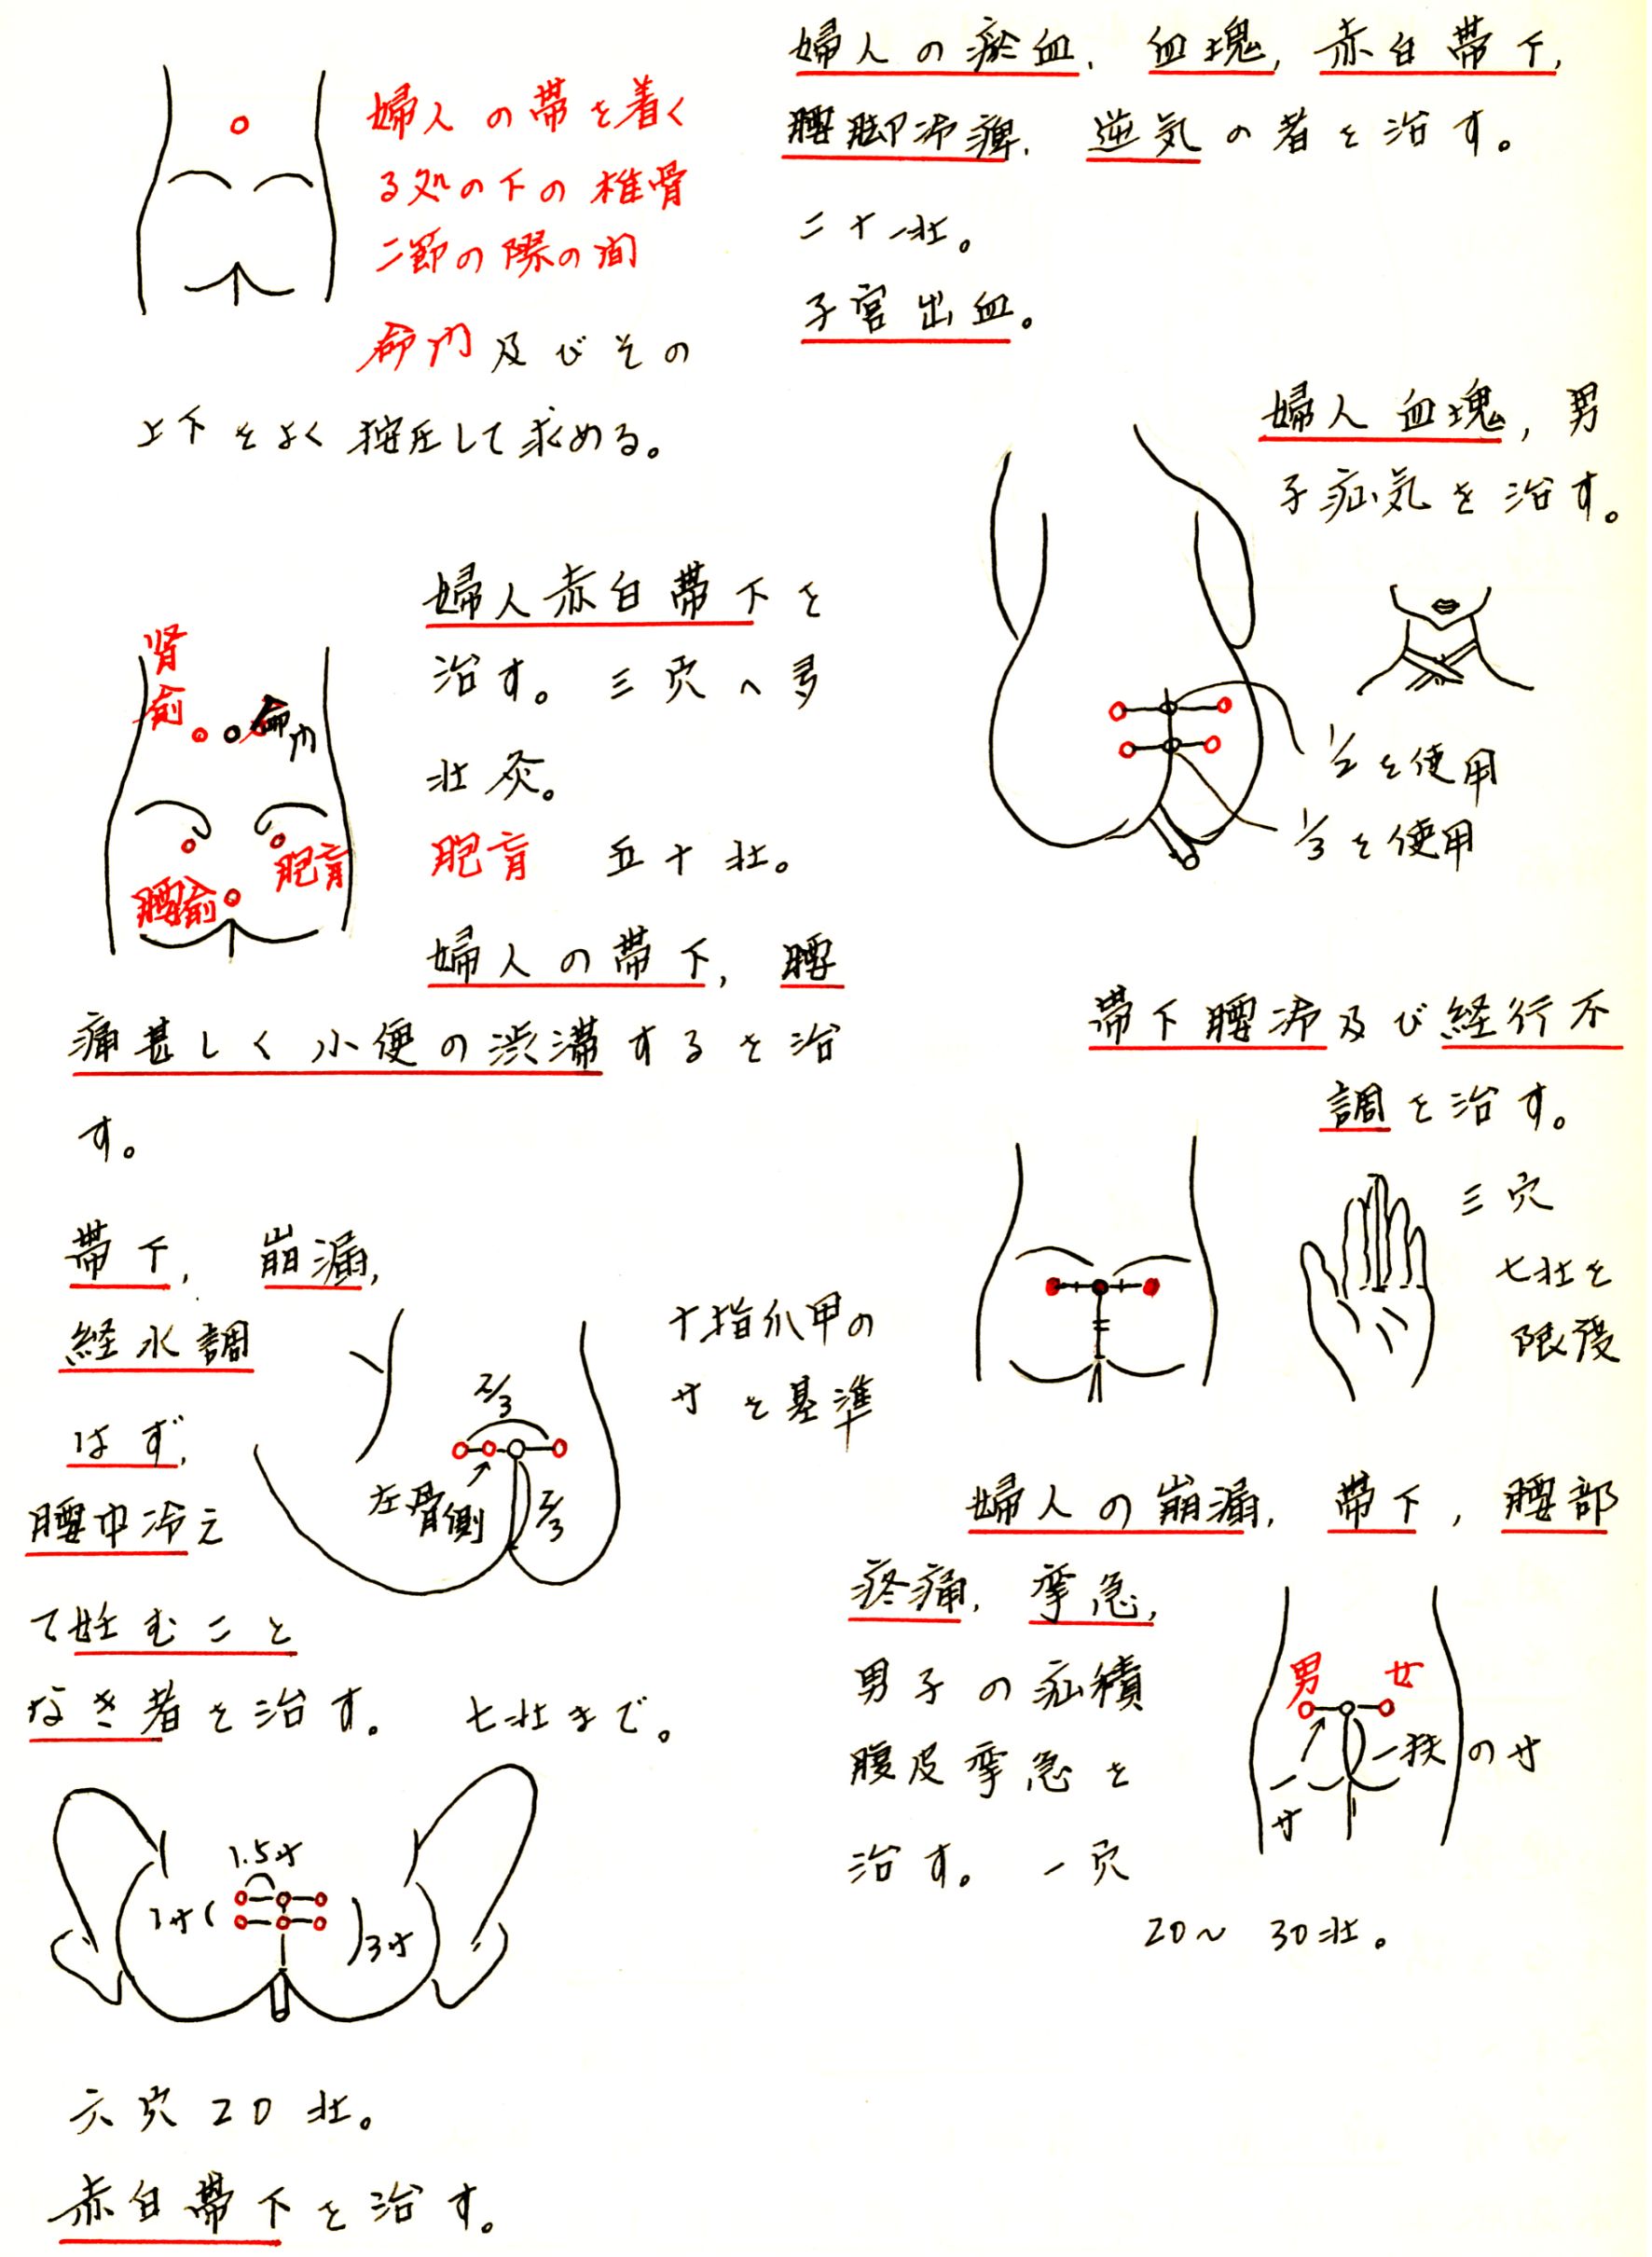 婦人の帯を着く
る処の下の椎骨
二節の際の間
命門及びその
上下をよく按圧して求める。
婦人の瘀血、血塊、赤白帯下、
腰脚冷痺、逆気の者を治す。
二十一壮。
子宮出血。
婦人血塊,男
子疝気を治す。
1/2を使用
1/3を使用
婦人赤白帯下を
治す。三穴へ多
壮灸。
胞肓 五十壮。
婦人の帯下,腰
痛甚しく小便の渋滞するを治
す。
腎
兪
命門
胞肓
腰兪
帯下腰冷及び経行不
調を治す。
三穴
七壮を
限度
帯下、崩漏、
経水調
はず、
腰中冷え
て妊むこと
なき者を治す。 七壮まで。
十指爪甲の
寸を基準
2/3
左骨側
2/3
婦人の崩漏、帯下,腰部
疼痛、挛急、
男子の疝積
腹皮挛急を
治す。一穴
20〜30壮。
男
女
一扶の寸
寸
1.5寸
1寸
3寸
六穴20壮。
赤白帯下を治す。